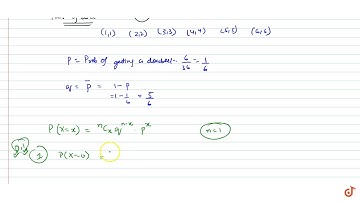 (1,1) (2,2) (3,3) (4,4) (5,5) (6,6)
P = Prob of getting a doublet = 6/36 = 1/6
q = p̄ = 1 - p
= 1 - 1/6 = 5/6
P(X=x) = ⁿCₓ qⁿ⁻ˣ . pˣ n=1
1 P(X=0) =